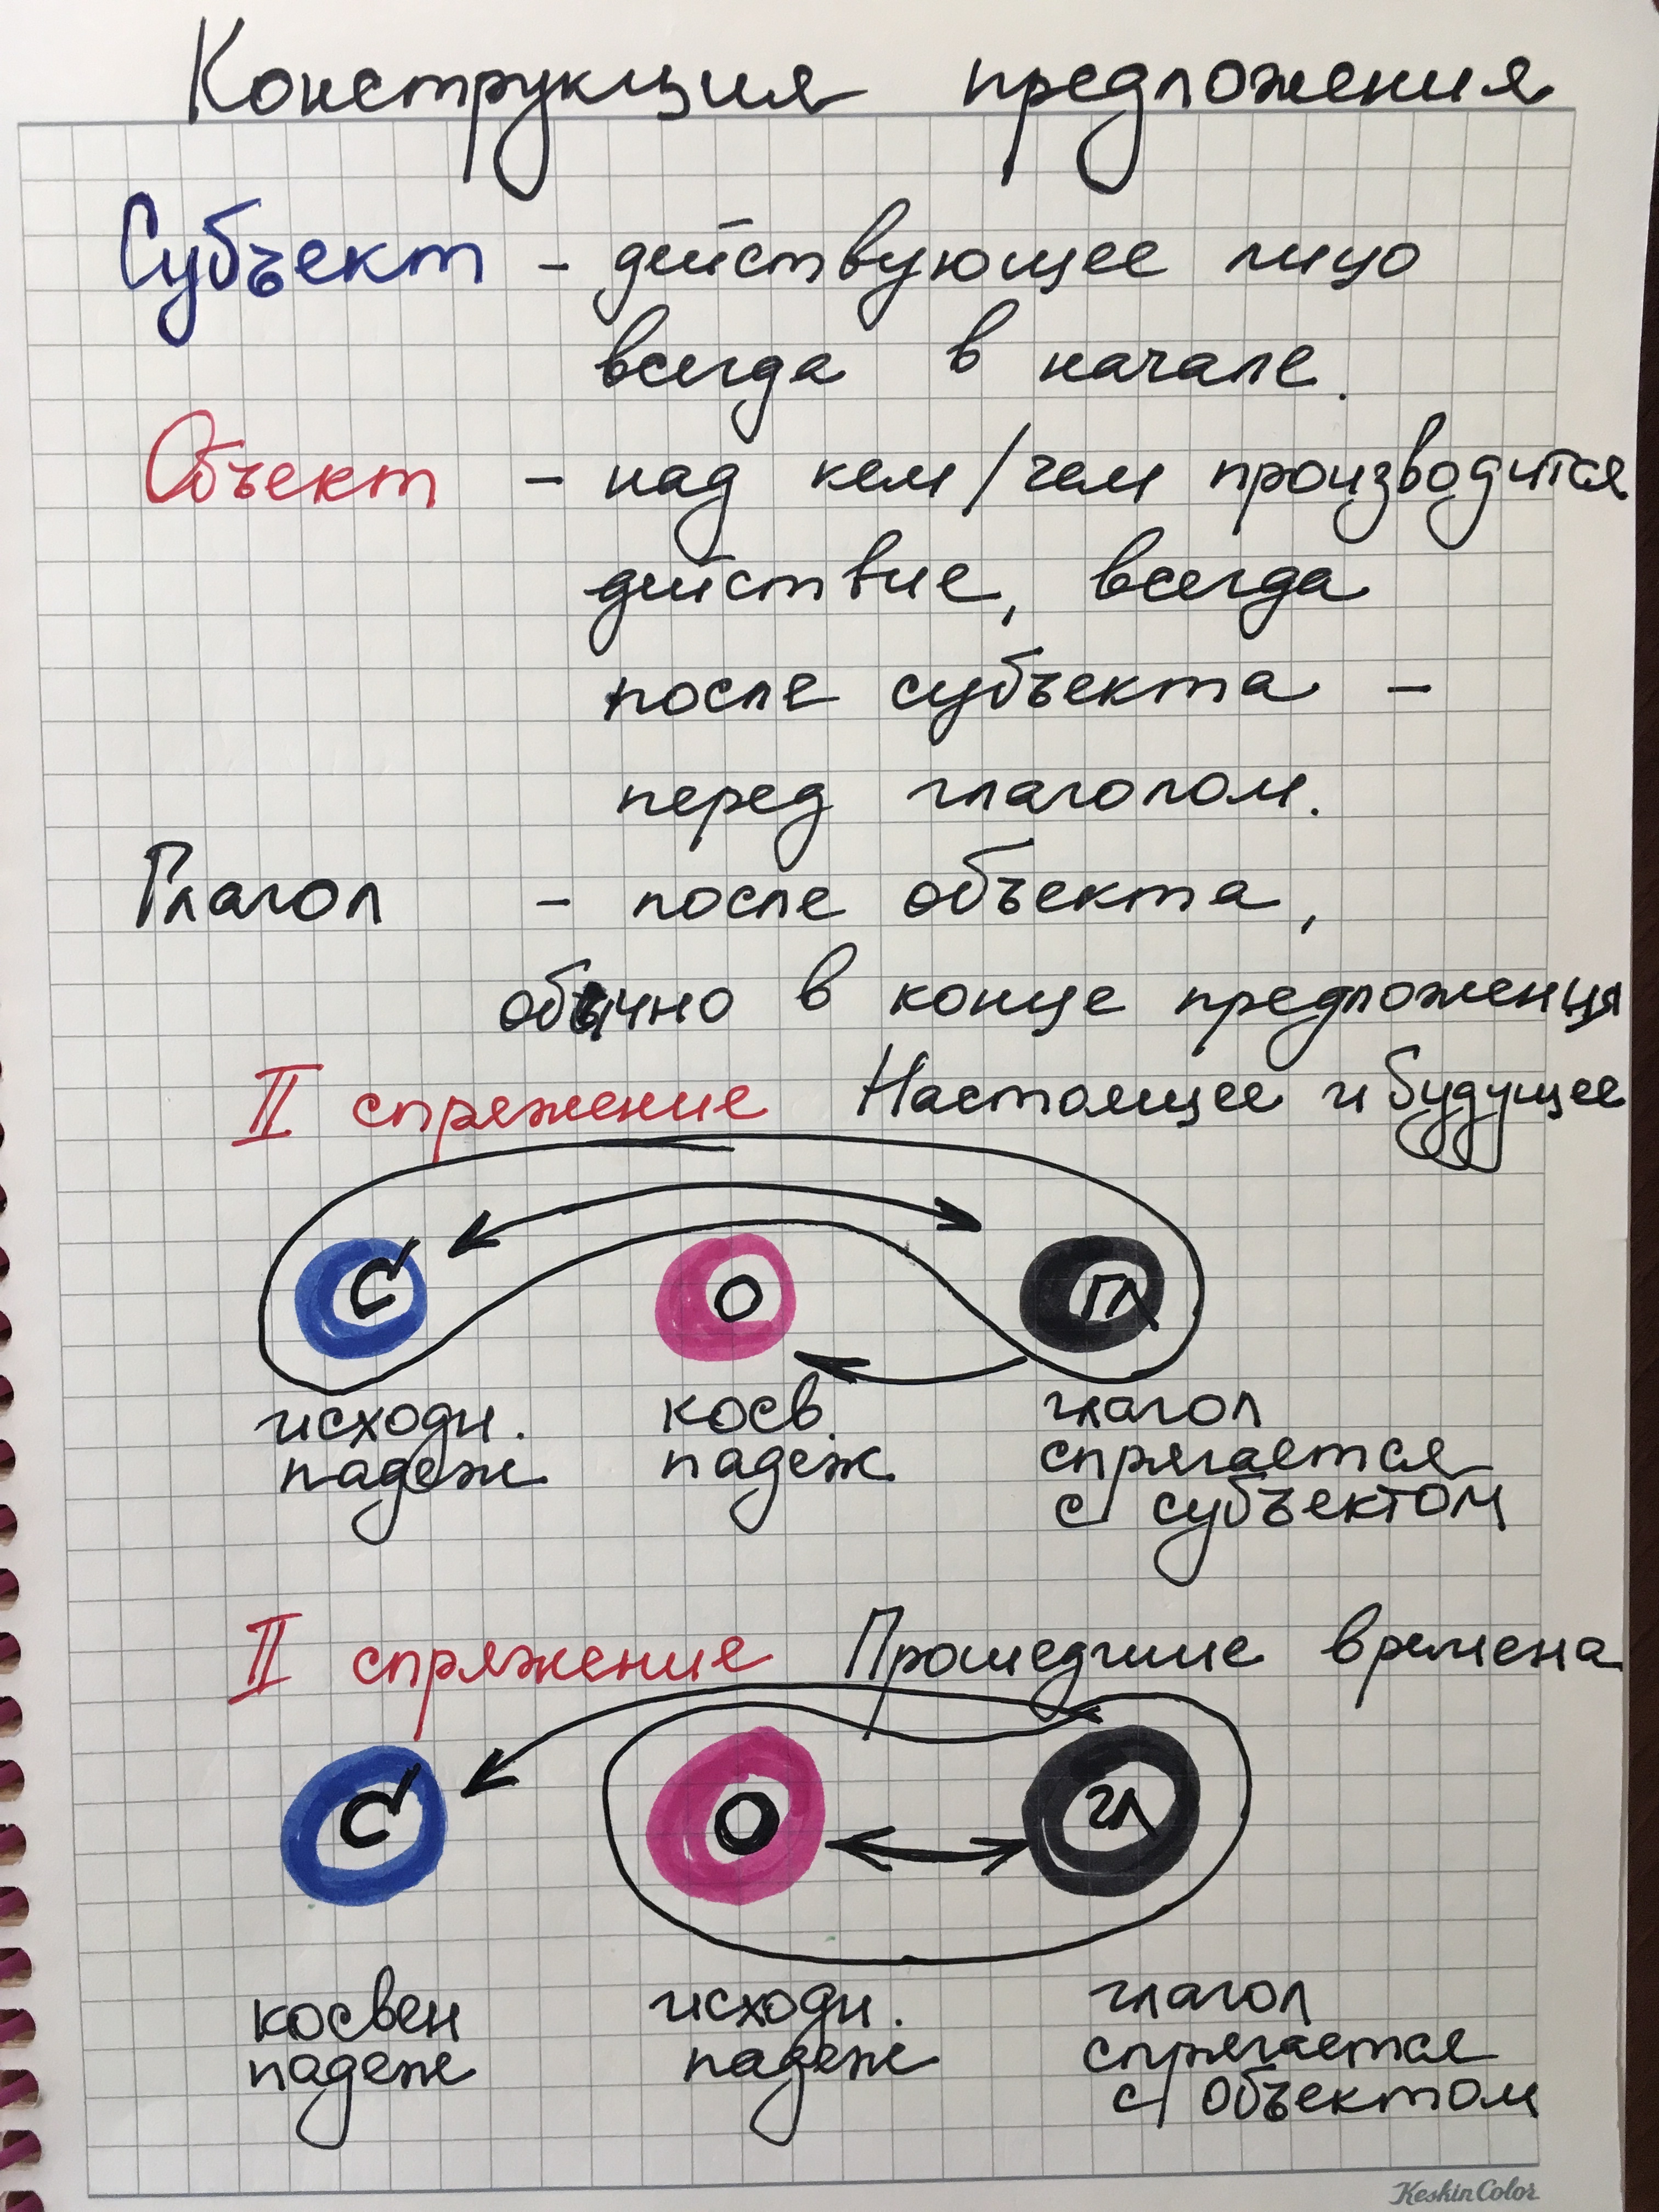 Конструкция предложения
Субъект - действующее лицо
всегда в начале.
Объект - над кем/чем производится
действие, всегда
после субъекта -
перед глаголом.
Глагол - после объекта,
обычно в конце предложения
II спряжение Настоящее и будущее
С О ГЛ
исходн. косв. глагол
падеж падеж спрягается
с субъектом
II спряжение Прошедшие времена
С О гл
косвен исходн. глагол
падеж падеж спрягается
с объектом
KeskinColor